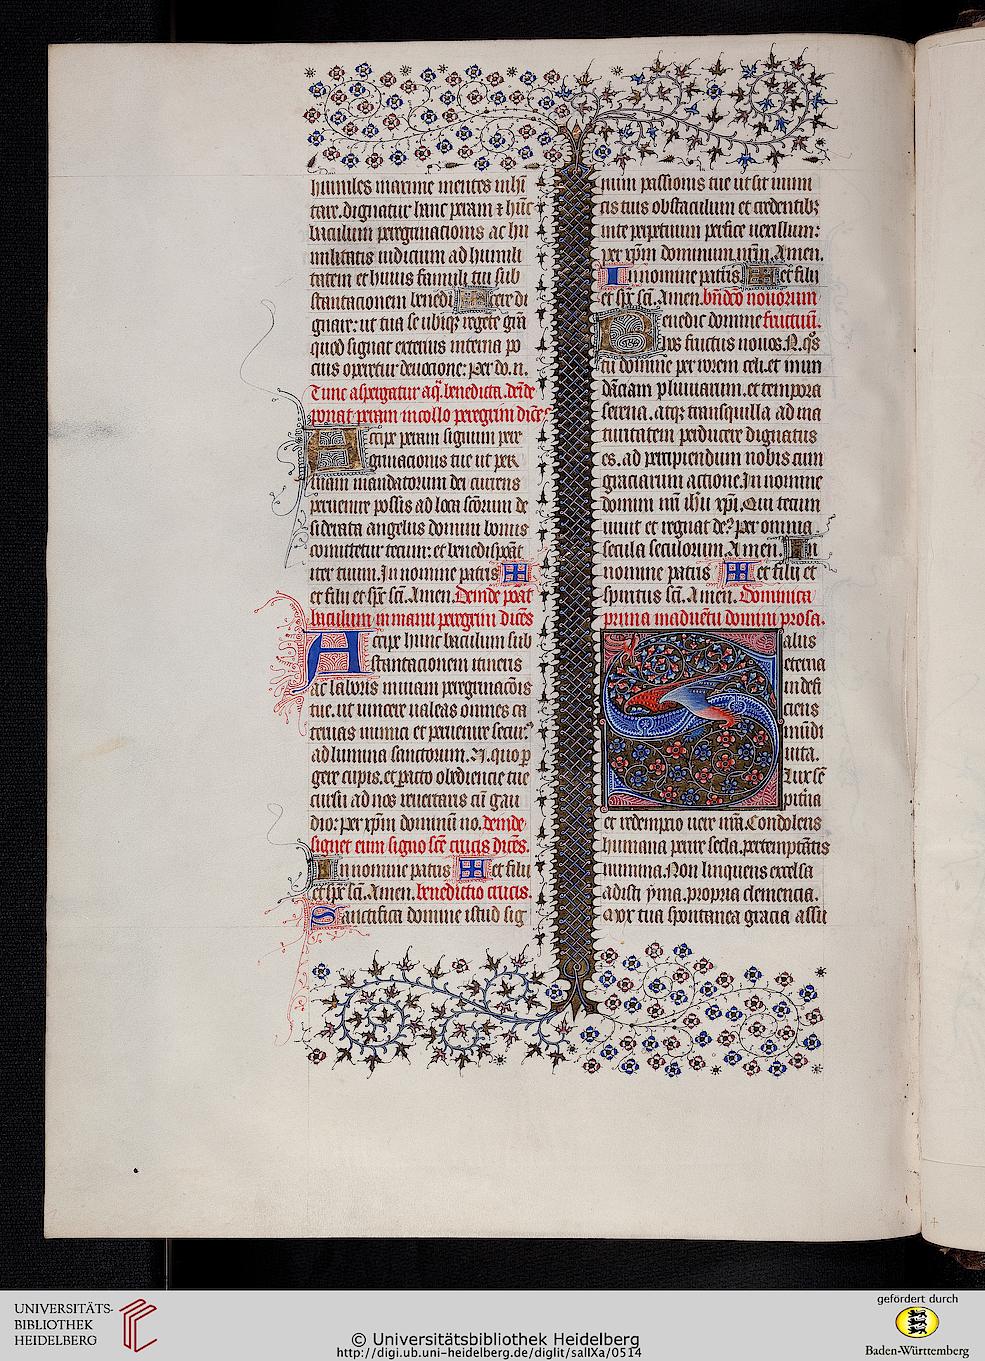 humiles marime mentes visi
tare. dignatur hanc peram ⁊ hūc
baculum peregrinacionis ac hu
militatis iudicium ad humili
tatem et huius famuli tui sub
stantacionem benedi✠cere di
gnare: ut tua se ubiqꝫ regete grā
quod signat exterius interna po
cius operetur deuocione: Per do. n.
Tunc aspergatur aq̄. benedicta. deīde
ponat peram in collo peregrini dicēs
Accipe peram signum pere
grinacionis tue ut per
uiam mandatorum dei currens
peruenire possis ad loca scōrum de
siderata angelus domini bonus
comittetur tecum: et benedispōat
iter tuum. In nomine patris ✠
et filii et spc̄ scī. Amen. Deinde poāt
baculum in manu peregrini dicēs
Accipe hunc baculum sub
stantacionem itineris
ac laboris in uiam peregrinacōis
tue. ut uincere ualeas omnes ca
teruas inimici et peruenire secur⁹
ad lumina sanctorum.
gere cupis. et pacto obediencie tue
cursu ad nos reuertaris cū gau
dio: per xp̄m dominū no. deinde
signet eum signo scē crucis dicēs.
In nomine patris ✠ et filii
et spc̄ scī. Amen. benedictio crucis.
Sanctifica domine istud sig
num passionis tue ut sit inimi
cis tuis obstaculum et credentibꝫ
in te perpetuum perfice uexillum:
per xp̄m dominum nr̄m. Amen.
In nomine patris ✠ et filii
et spc̄ scī. Amen. bn̄dco nouorum
Benedic domine fructuū.
hos fructus nouos. N. qs̄
tu domine per rorem celi. et inun
dāciam pluuiarum. et tempora
serena. atqꝫ tranquilla ad ma
turitatem perducere dignatus
es. ad percipiendum nobis cum
graciarum actione. In nomine
domini nrī ihū xpī. Qui tecum
uiuit et regnat de⁹. Per omnia
secula seculorum. Amen. In
nomine patris ✠ et filij et
spiritus scī. Amen. Dominica
prima in aduētu domini prosa.
Salus
eterna
indefi
ciens
mūdi
uita.
Lux sē
pitn̄a
et redempcio uere nrā. Condolens
humana perire secla. per temptātis
numina. Non linquens excelsa
adisti yma. propria clemencia.
Mox tua spontanea gracia assu
UNIVERSITÄTS-
BIBLIOTHEK
HEIDELBERG
© Universitätsbibliothek Heidelberg
http://digi.ub.uni-heidelberg.de/diglit/salIXa/0514
gefördert durch
Baden-Württemberg